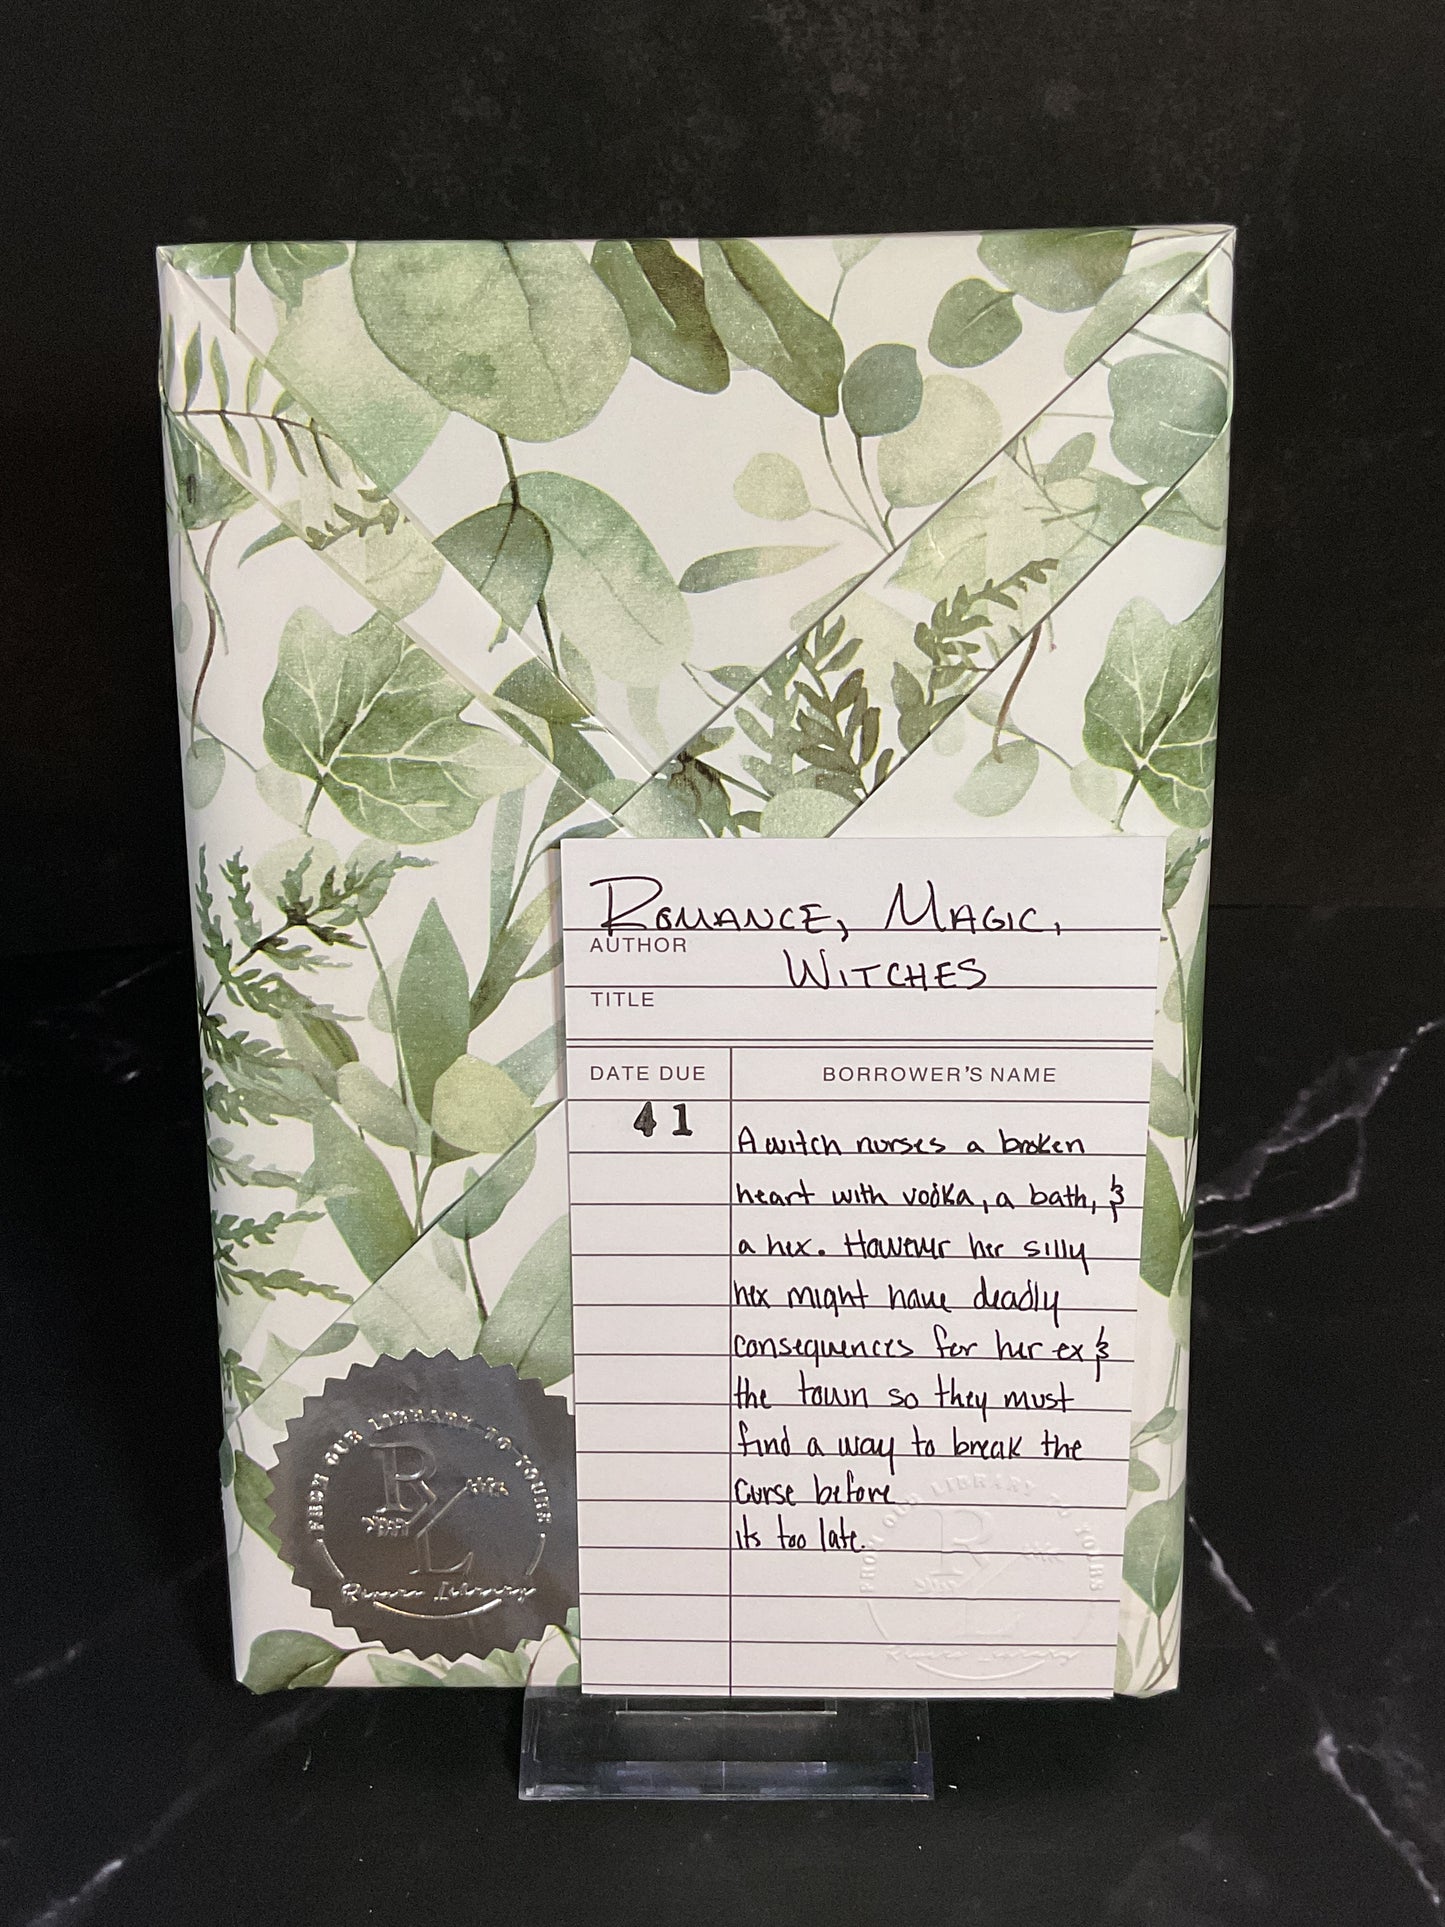 ROMANCE, MAGIC,
AUTHOR
WITCHES
TITLE
DATE DUE
BORROWER'S NAME
41
A witch nurses a broken
heart with vodka, a bath, &
a hex. However her silly
hex might have deadly
consequences for her ex &
the town so they must
find a way to break the
curse before
its too late.
FROM OUR LIBRARY TO YOURS
RL
Library
FROM OUR LIBRARY TO YOURS
RL
Library